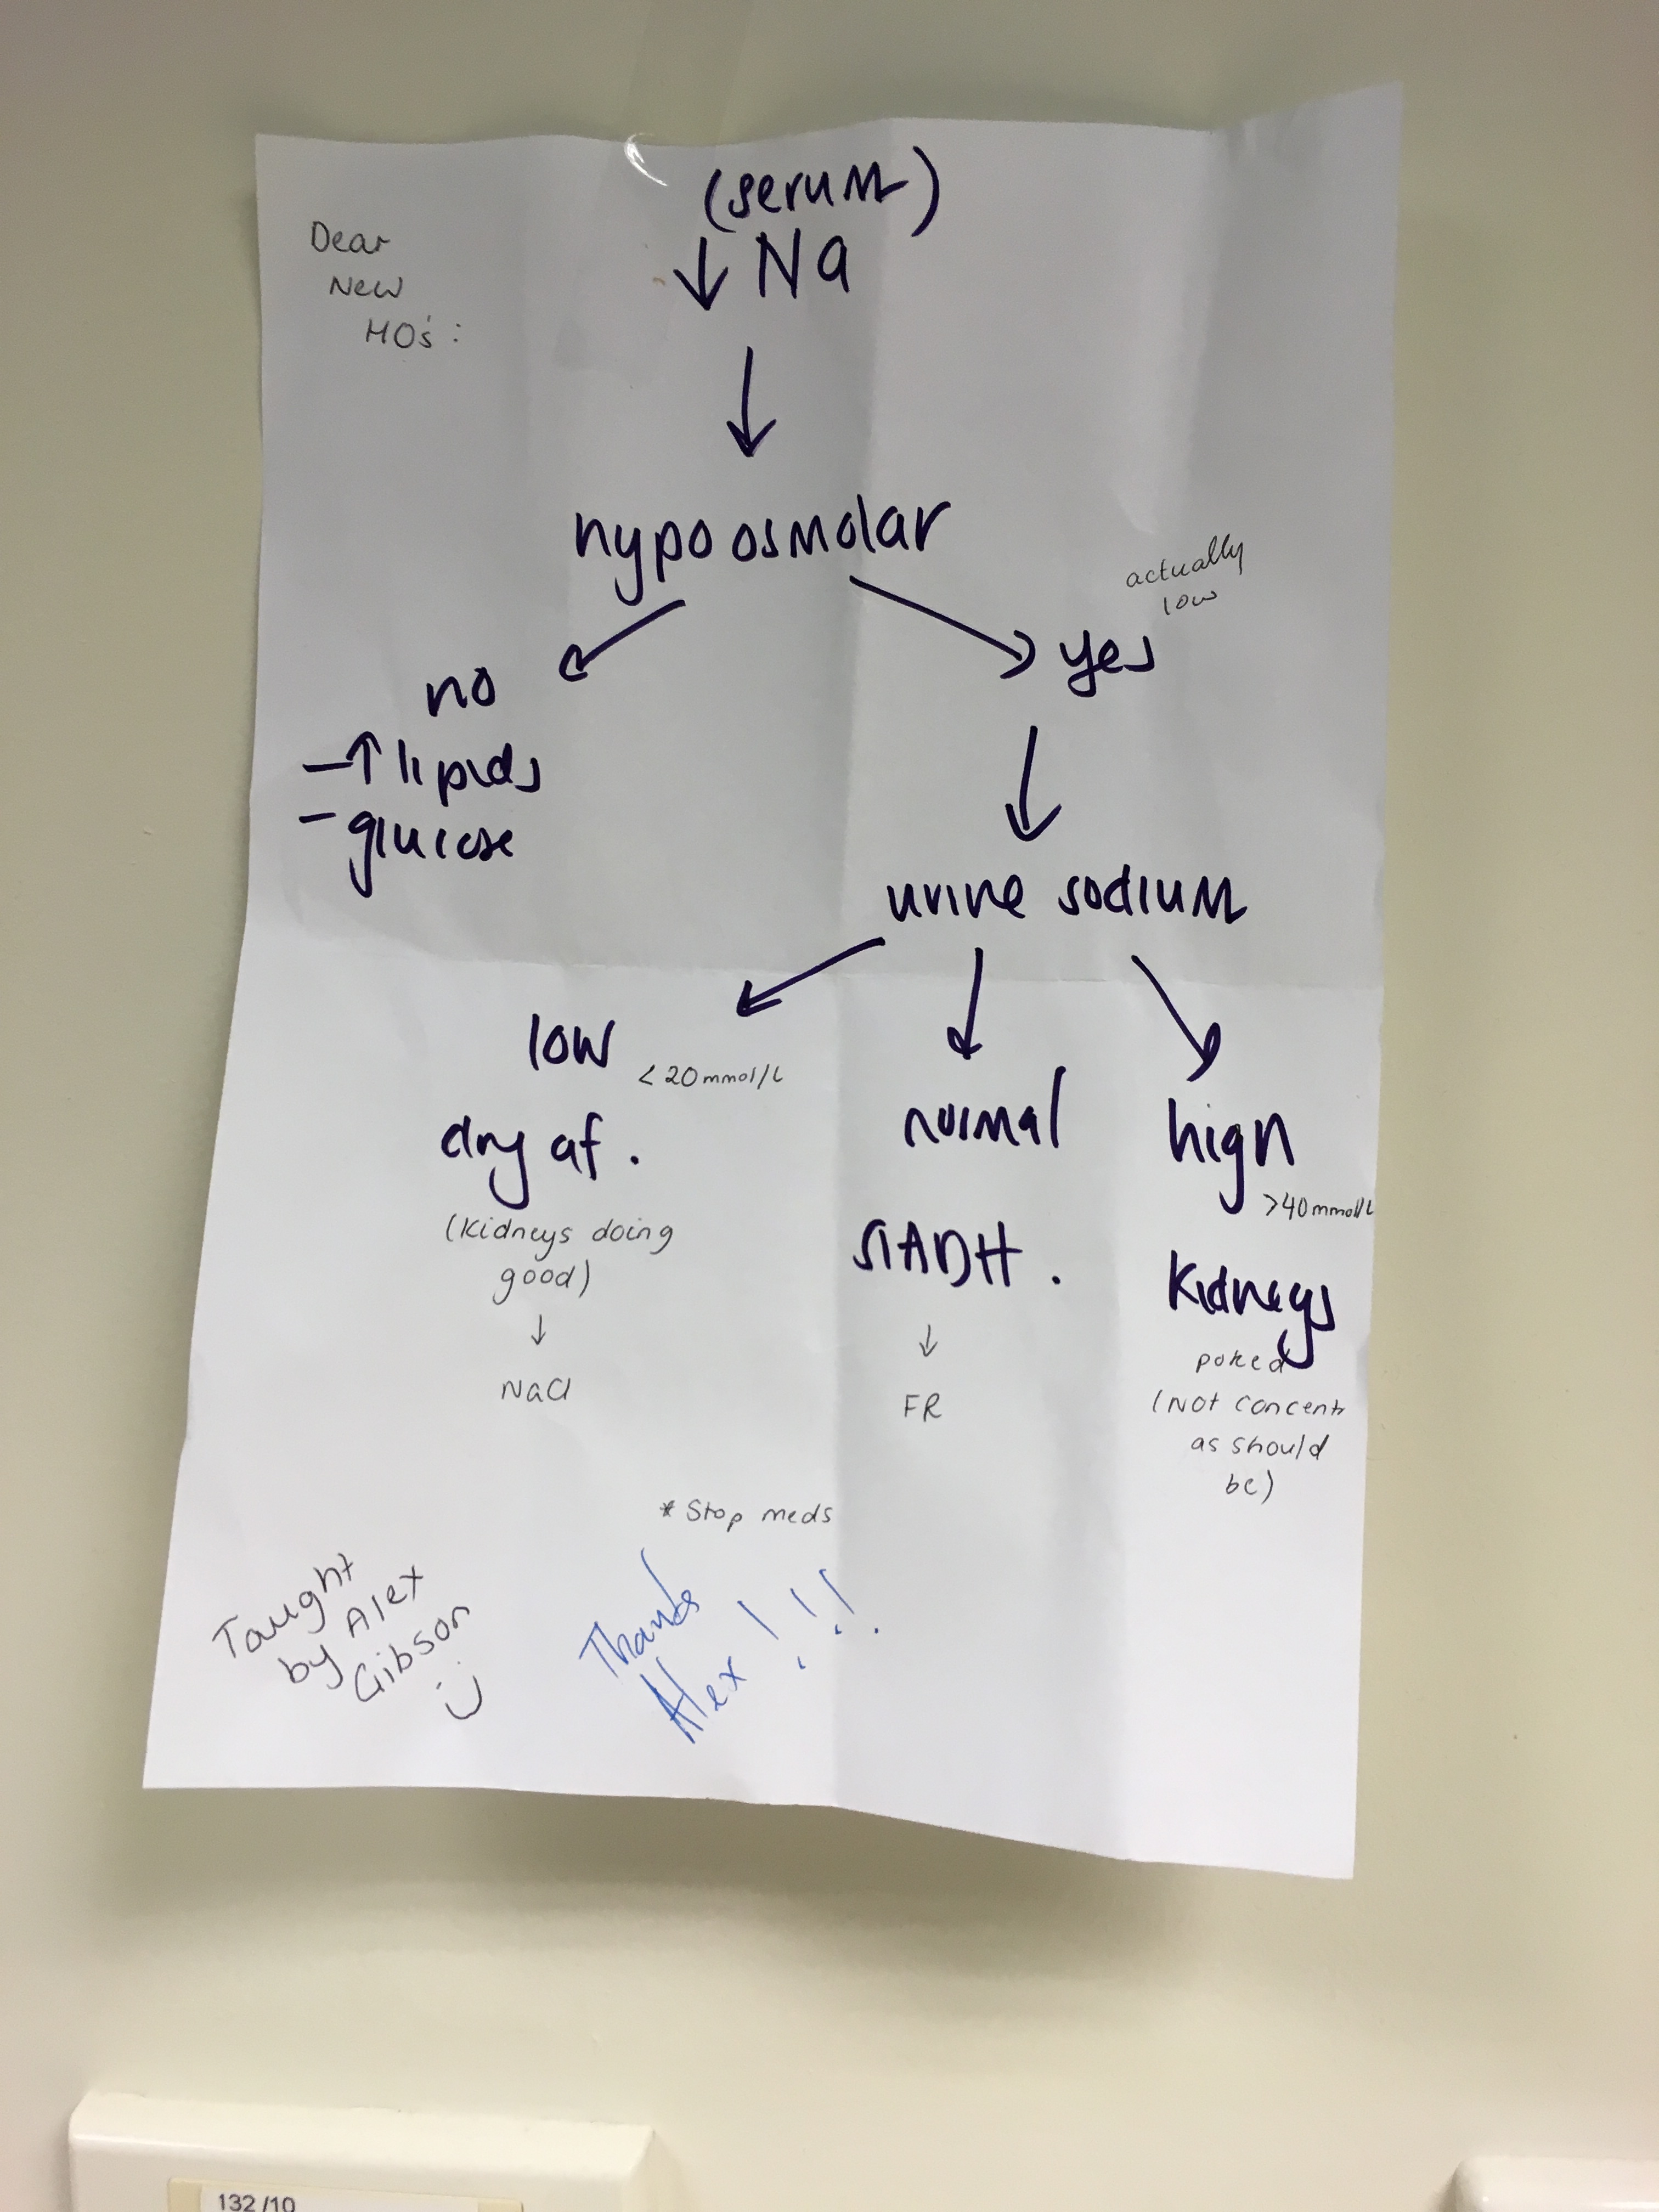 (serum)
↓ Na
Dear
New
HO's:
hypoosmolar
actually
low
no
yes
- ↑ lipids
- glucose
urine sodium
low < 20 mmol/L
dry af.
(kidneys doing
good)
↓
NaCl
normal
SIADH.
↓
FR
high
>40 mmol/L
Kidneys
poked
(Not concentr
as should
be)
* Stop meds
Taught
by Alex
Gibson
Thanks
Alex !!!
132/10